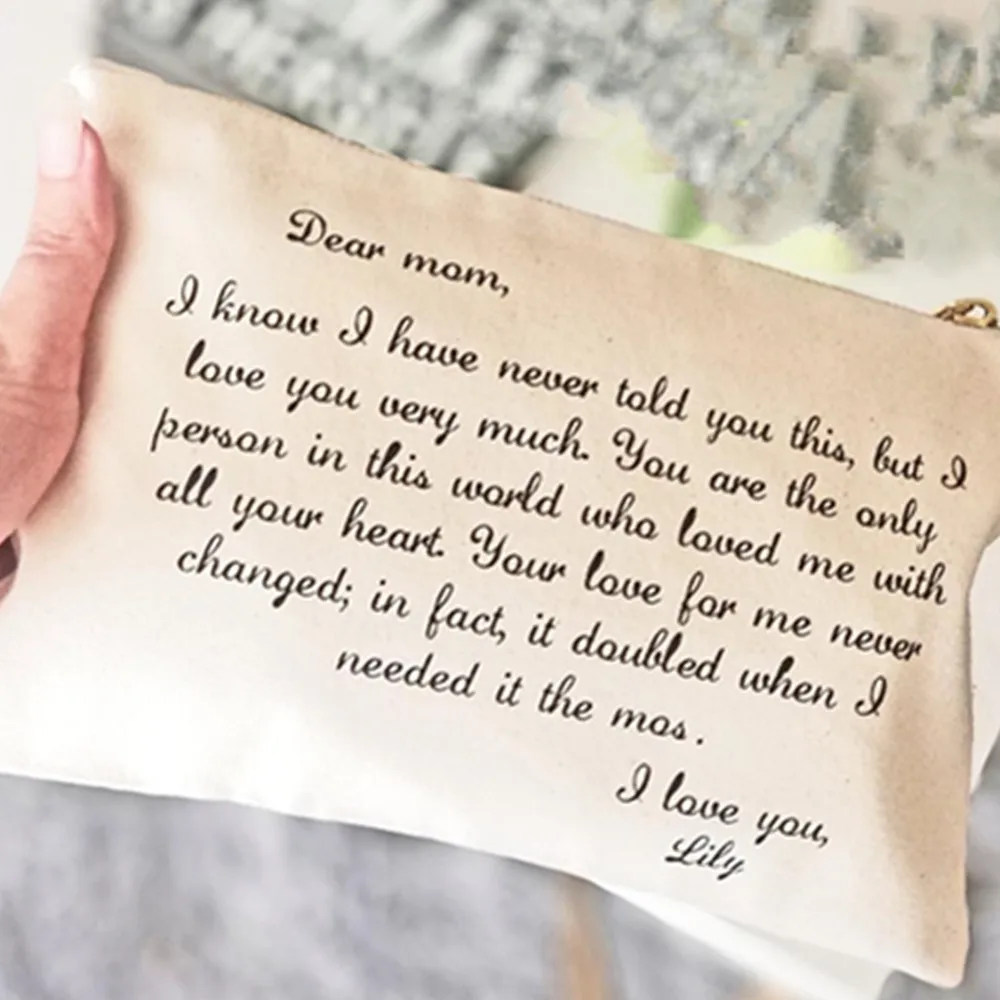 Dear mom,
I know I have never told you this, but I
love you very much. You are the only
person in this world who loved me with
all your heart. Your love for me never
changed; in fact, it doubled when I
needed it the mos .
I love you,
Lily